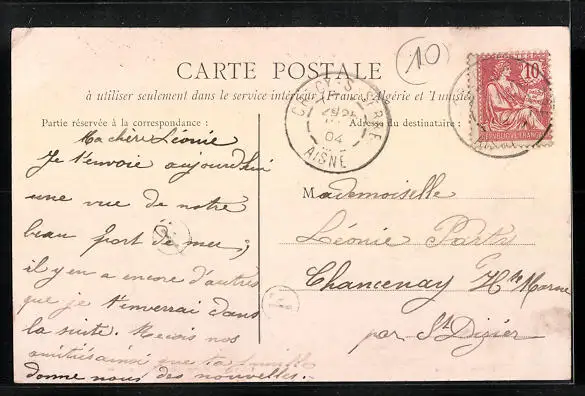 10
CARTE POSTALE
à utiliser seulement dans le service intérieur (France, Algérie et Tunisie
Partie réservée à la correspondance :
Adresse du destinataire :
CRÉCY-S-SERRE
04
AISNE
10
Ma chère Léonie
Je t'envoie aujourd'hui
une vue de notre
beau port de mer ;
il y en a encore d'autres
que je t'enverrai dans
la suite. Recois nos
amitiés ainsi que ta famille
donne nous des nouvelles.
Mademoiselle
Léonie
Chancenay Hte Marne
par St Dizier